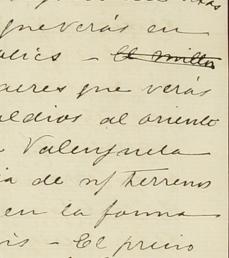 que verás en
– El millón
aeres que verás
aldios al oriente
Valenzuela
ia de n/ terrenos
en la forma
is – El precio